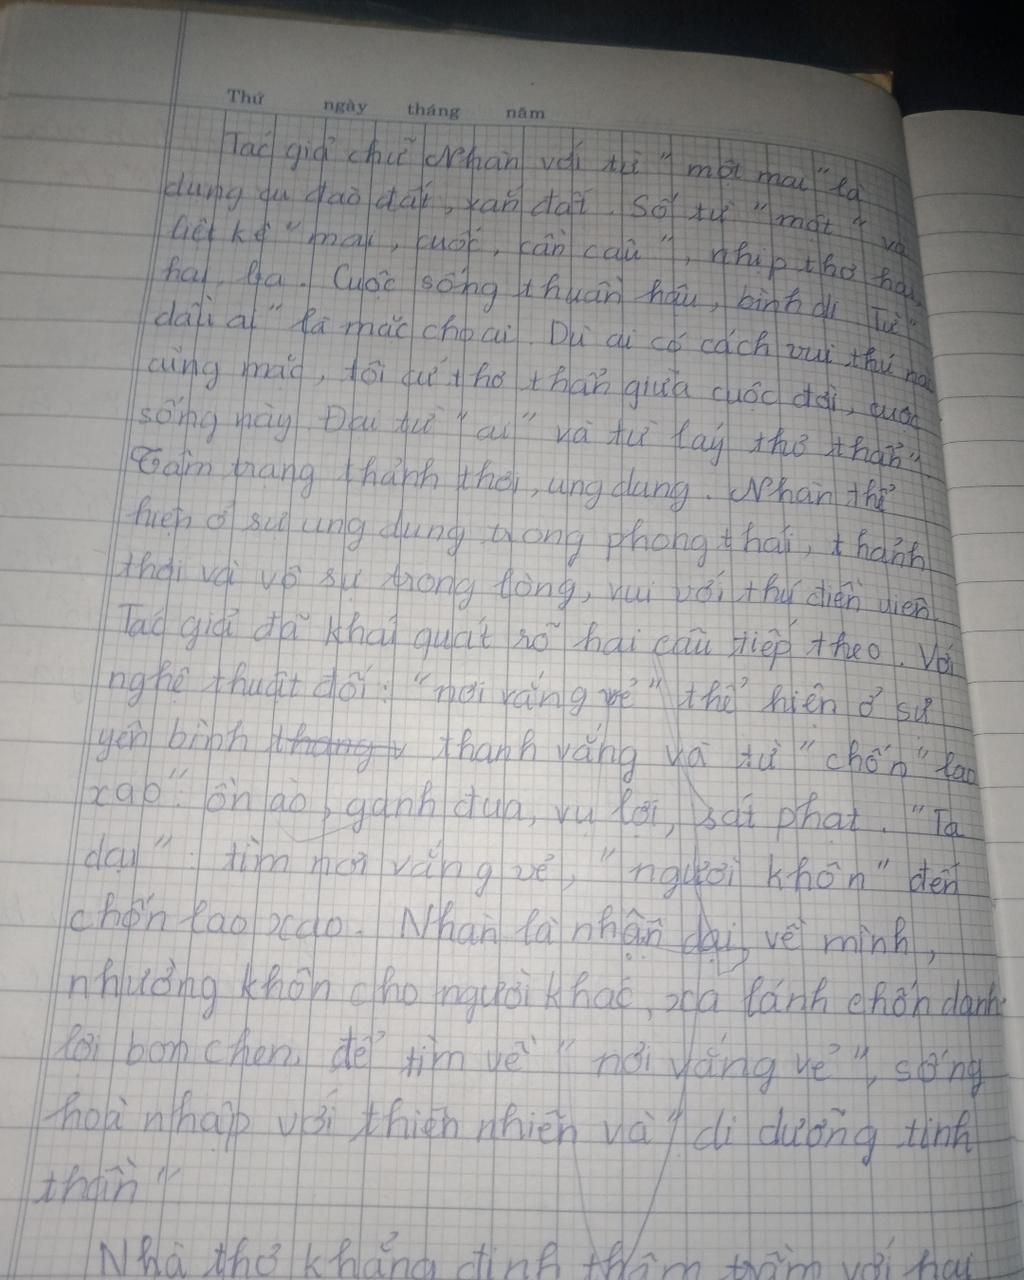 Thứ ngày tháng năm
Tác giả chữ Nhàn với từ "một mai" là
dụng cụ đào đất, xắn đất. Số từ "một" và
liệt kê "mai, cuốc, cần câu", nhịp thơ hai,
hai, ba. Cuộc sống thuần hậu, bình dị. Từ "
dầu ai" là mặc cho ai. Dù ai có cách vui thú nào
cũng mặc, tôi cứ thơ thẩn giữa cuộc đời, cuộc
sống này. Đại từ "ai" và từ láy thơ thẩn"
Tâm trạng thảnh thơi, ung dung. Nhàn thể
hiện ở sự ung dung trong phong thái, thảnh
thơi và vô sự trong lòng, vui với thú điền viên.
Tác giả đã khái quát rõ hai câu tiếp theo. Với
nghệ thuật đối: "nơi vắng vẻ" thể hiện ở sự
yên bình thanh vắng và từ "chốn" lao
xao": ồn ào, ganh đua, vụ lợi, sát phạt. "Ta
dại": tìm nơi vắng vẻ, "người khôn" đến
chốn lao xao. Nhàn là nhận dại về mình,
nhường khôn cho người khác, xa lánh chốn danh
lợi bon chen để tìm về "nơi vắng vẻ", sống
hoà nhập với thiên nhiên và "di dưỡng tinh
thần"
Nhà thơ khẳng định thâm trầm với hai